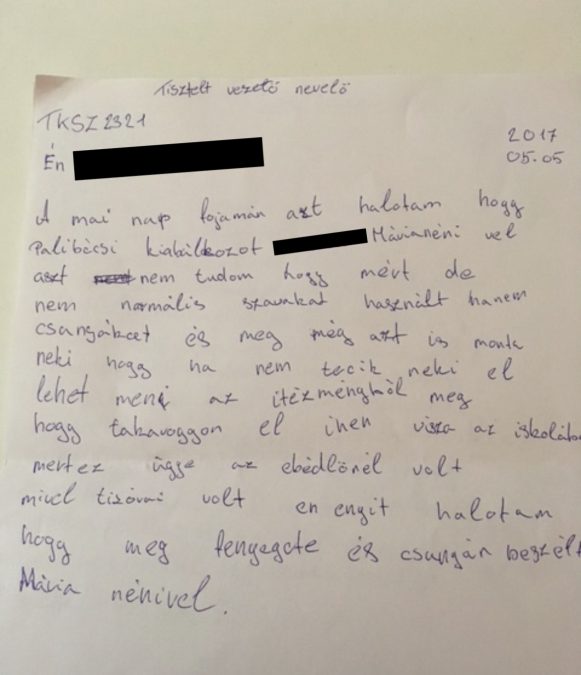 Tisztelt vezető nevelő
TKSZ2321
2017
Én
05.05
A mai nap fojamán azt halotam hogy
Palibácsi kiabálkozot Márianéni vel
aszt nem tudom hogy mért de
nem normális szavakat használt hanem
csangákcet és meg még azt is monta
neki hogy ha nem tecik neki el
lehet meni az itézményből meg
hogy takavoggon el inen visza az iskolába
mert ez ügye az ebédlönél volt
mivel tizórai volt en engit halotam
hogy meg fenyegete és csungán beszélt
Mária nénivel.